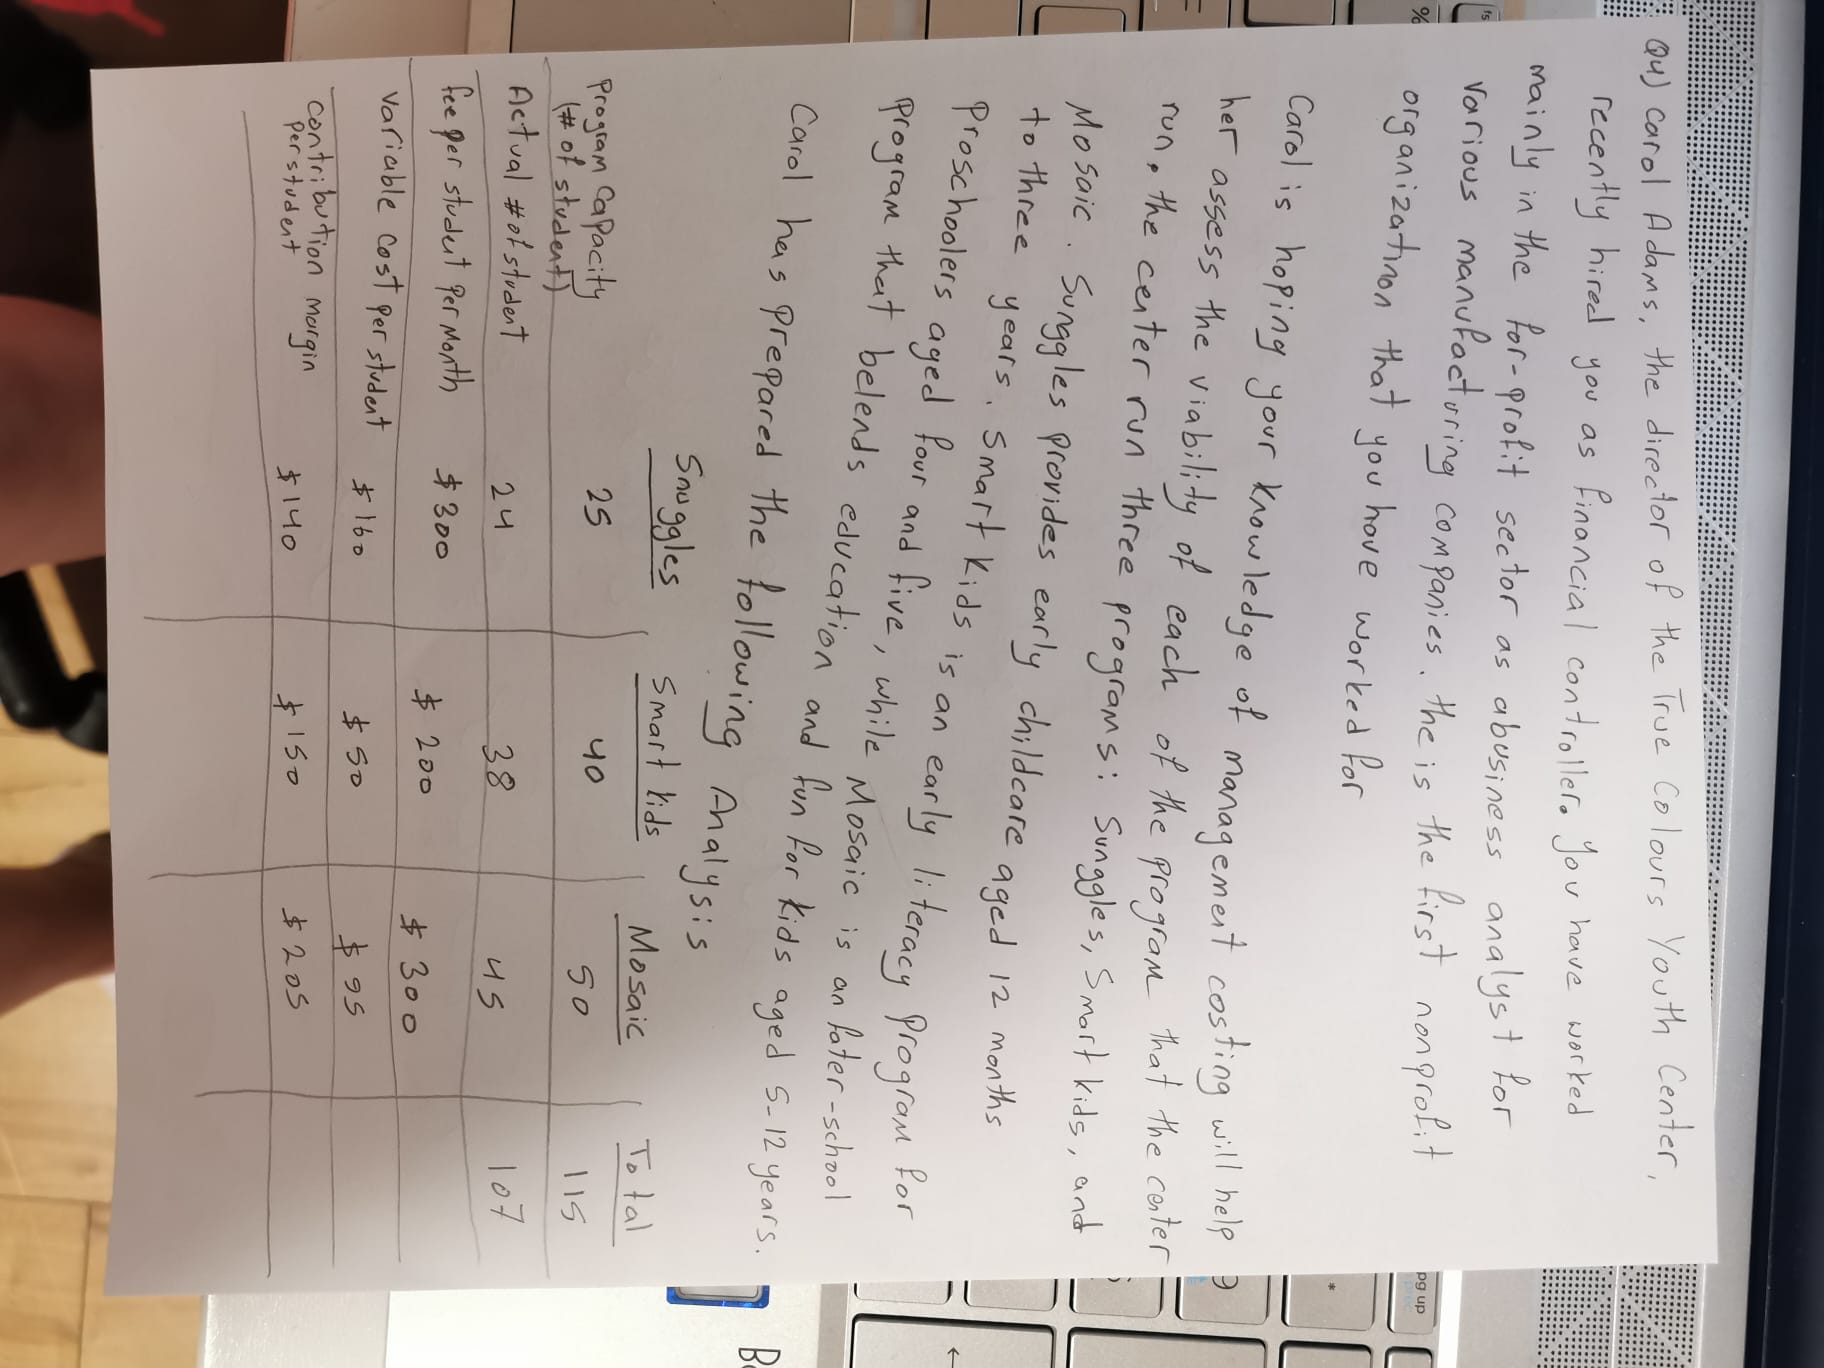 Q4) Carol Adams, the director of the True Colours Youth Center,
recently hired you as financial controller. You have worked
mainly in the for-profit sector as abusiness analyst for
various manufacturing companies. the is the first nonprofit
organizatinon that you have worked for
Carol is hoping your knowledge of management costing will help
her assess the viability of each of the program that the center
run. the center run three programs: Sunggles, Smart kids, and
Mosaic. Sunggles provides early childcare aged 12 months
to three years. Smart kids is an early literacy program for
Proschoolers aged four and five, while Mosaic is an fater-school
Program that belends education and fun for kids aged 5-12 years.
Carol has prepared the following Analysis
Snuggles Smart kids Mosaic Total
Program Capacity 25 40 50 115
(# of student)
Actual # of student 24 38 45 107
fee per student per Month $300 $200 $300
Variable Cost per student $160 $50 $95
Contribution margin $140 $150 $205
per student
f5
%
pg up
prec
*
9
←